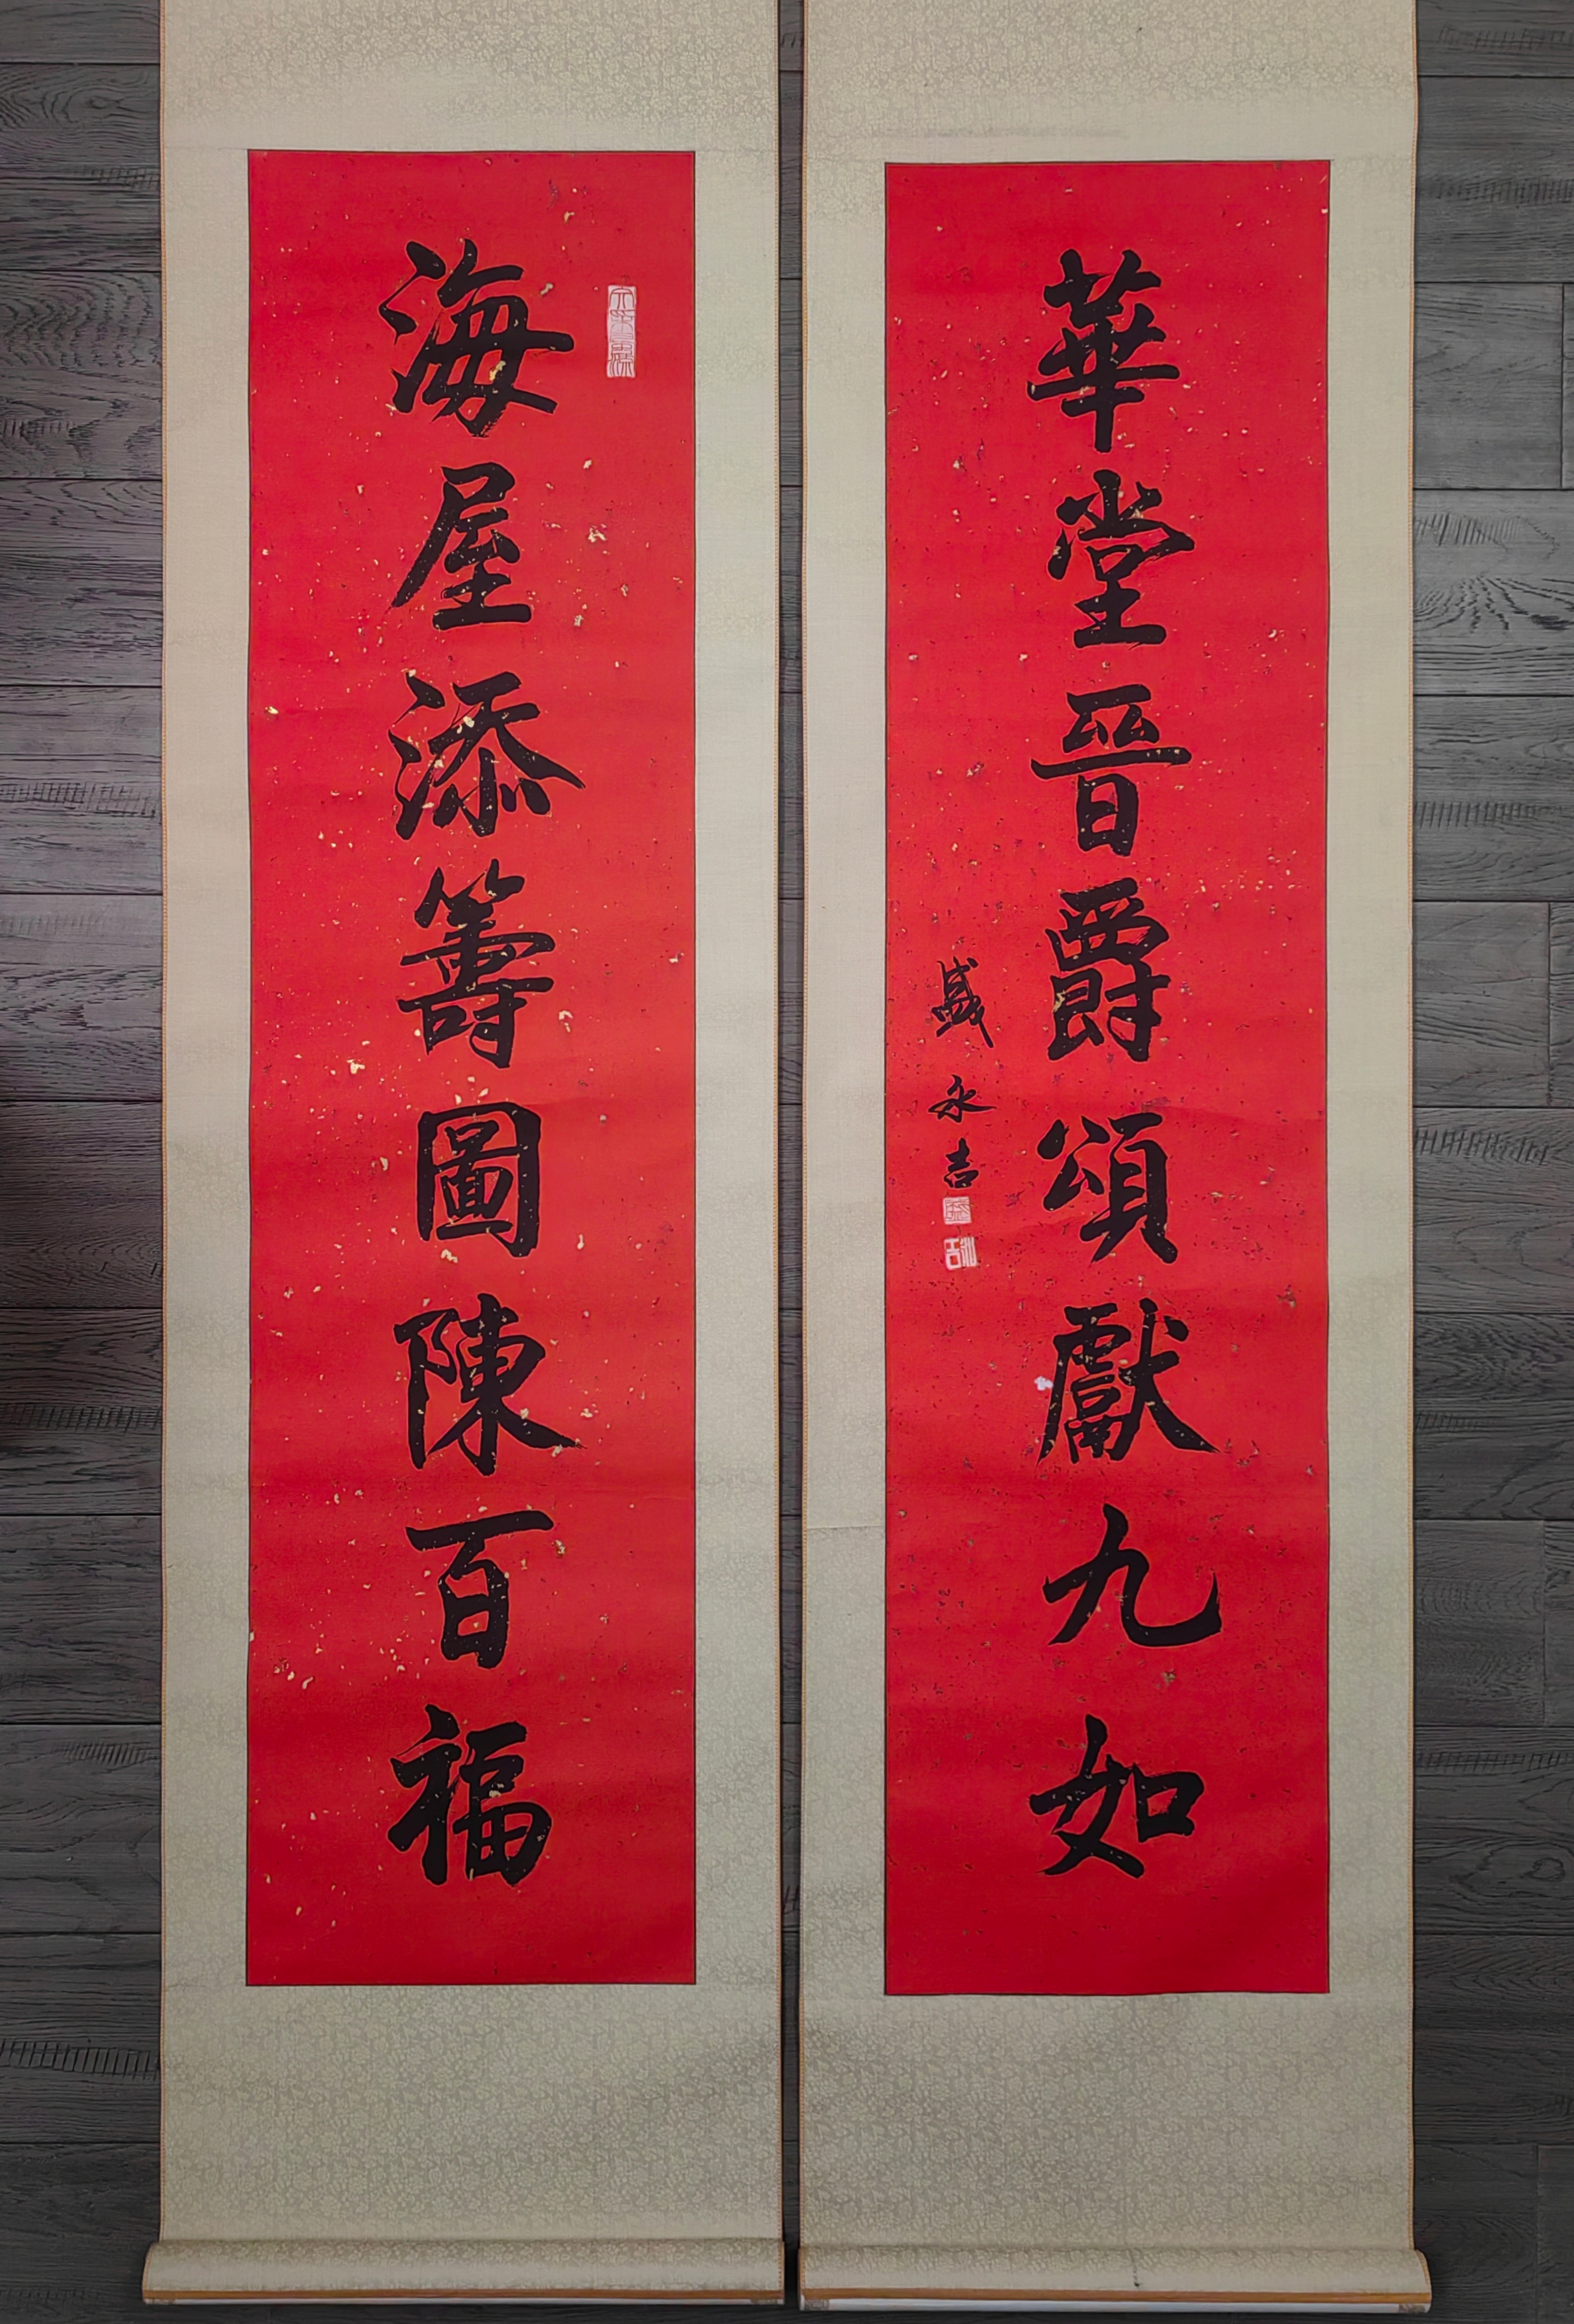 海屋添籌圖陳百福
華堂晉爵頌獻九如
盛永吉